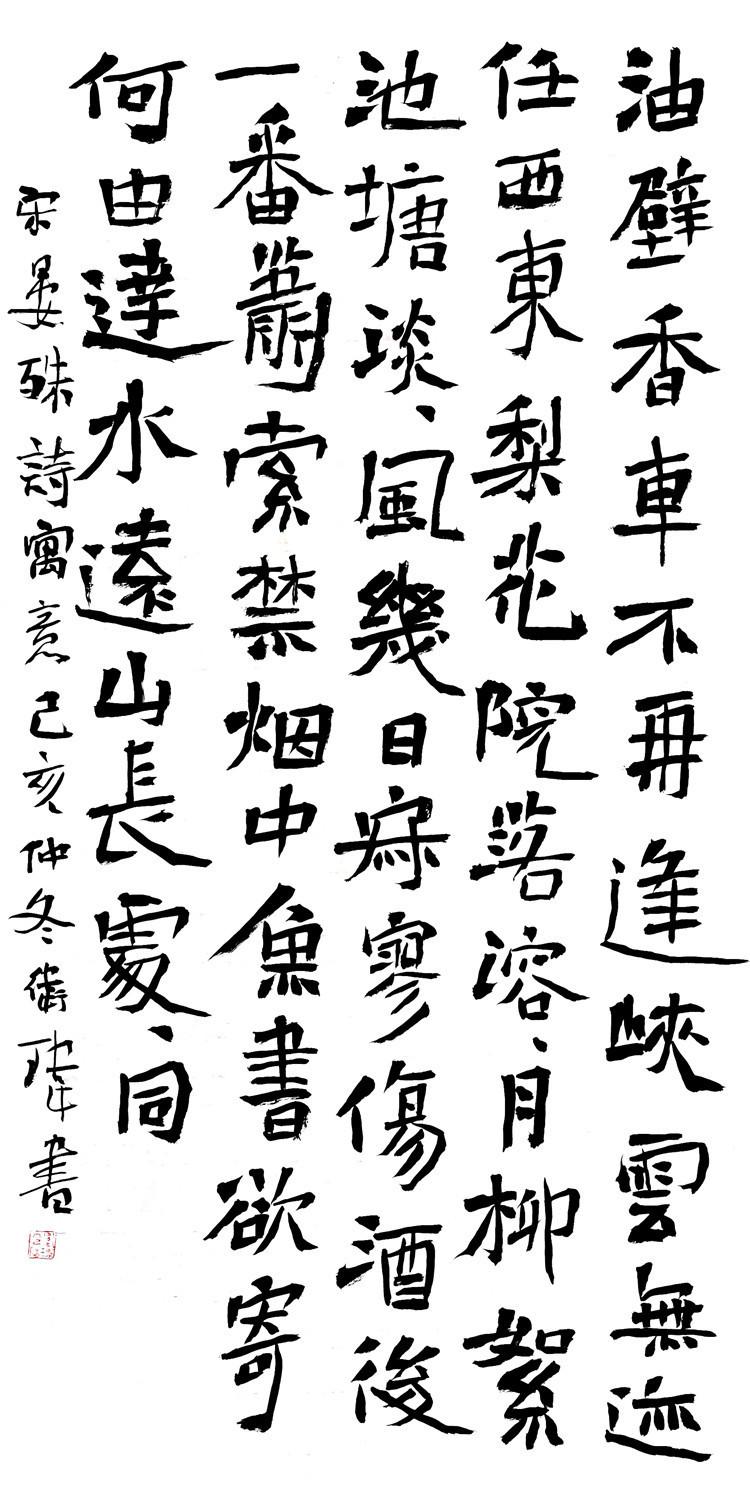 油壁香車不再逢峽雲無迹
任西東梨花院落溶、月柳絮
池塘淡、風幾日寂寥傷酒後
一番蕭索禁烟中魚書欲寄
何由達水遠山長處、同
宋晏殊詩寓意己亥仲冬衛瑋書